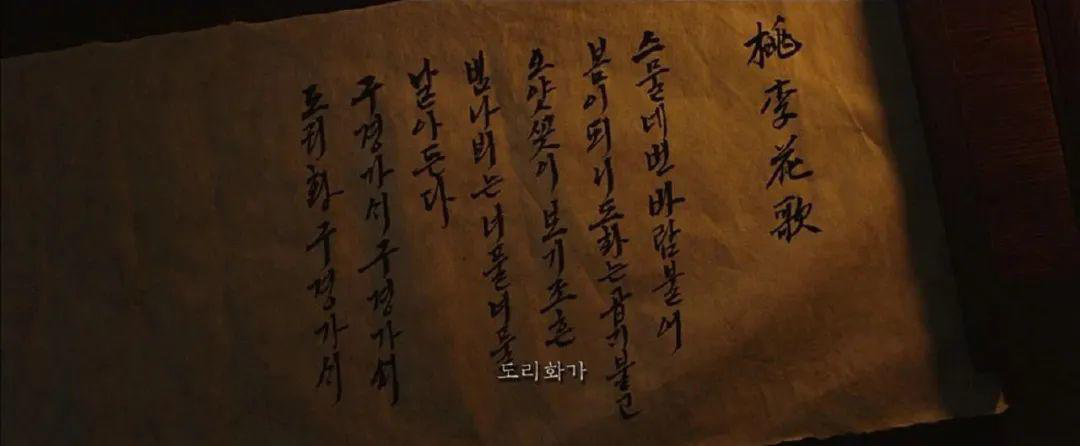 桃李花歌
스물네번 바람불어
봄이되니 도화는곱기불고
오얏꽃이 보기조흔
범나비는 너풀너풀
날아든다
구경가세 구경가세
도리화 구경가세
도리화가